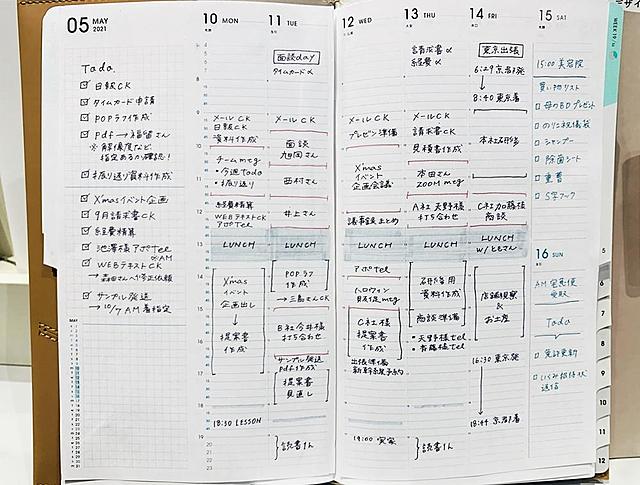 05 MAY
2021
Todo.
日報CK
タイムカード申請
POPラフ作成
pdf→福留さん
※解像度など
指定あるか確認!
振り返り資料作成
Xmasイベント企画
9月請求書CK
経費精算
池澤様アポTel
※AM
WEBテキストCK
→森田さんへ修正依頼
サンプル発送
→10/7AM着指定
MAY
10 MON
メールCK
日報CK
資料作成
チームmtg
・今週Todo
・振り返り
経費精算
WEBテキストCK
アポTel
LUNCH
Xmas
イベント
企画出し
↓
提案書
作成
18:30 LESSON
11 TUE
面談day
タイムカード〆
メールCK
面談
旭岡さん
西村さん
井上さん
LUNCH
POPラフ
作成
→三島さんCK
B社今井様
打ち合わせ
サンプル発送
pdf作成
提案書
見直し
読書1h
12 WED
メールCK
プレゼン準備
Xmas
イベント
企画会議
議事録まとめ
LUNCH
アポTel
ハロウィン
販促mtg
C社様
提案書
作成
出張準備
新幹線予約
19:00 実家
13 THU
請求書〆
経費〆
メールCK
請求書CK
見積書作成
本田さん
ZOOM mtg
A社 天野様
打ち合わせ
LUNCH
研修用
資料作成
商談準備
・天野様tel
・斉藤様tel
読書1h
14 FRI
東京出張
6:29京都発
↓
8:40東京着
本社研修
C社加藤様
商談
LUNCH
w/ともさん
店舗視察
&
お土産
16:30東京発
↓
18:44京都着
15 SAT
15:00美容院
買い物リスト
母のBDプレゼント
のりこ祝儀袋
シャンプー
除菌シート
重曹
S字フック
16 SUN
AM宅急便
受取
Todo
免許更新
いくみ招待状
返信
WEEK 19
5
6
7
8
9
10
11
12